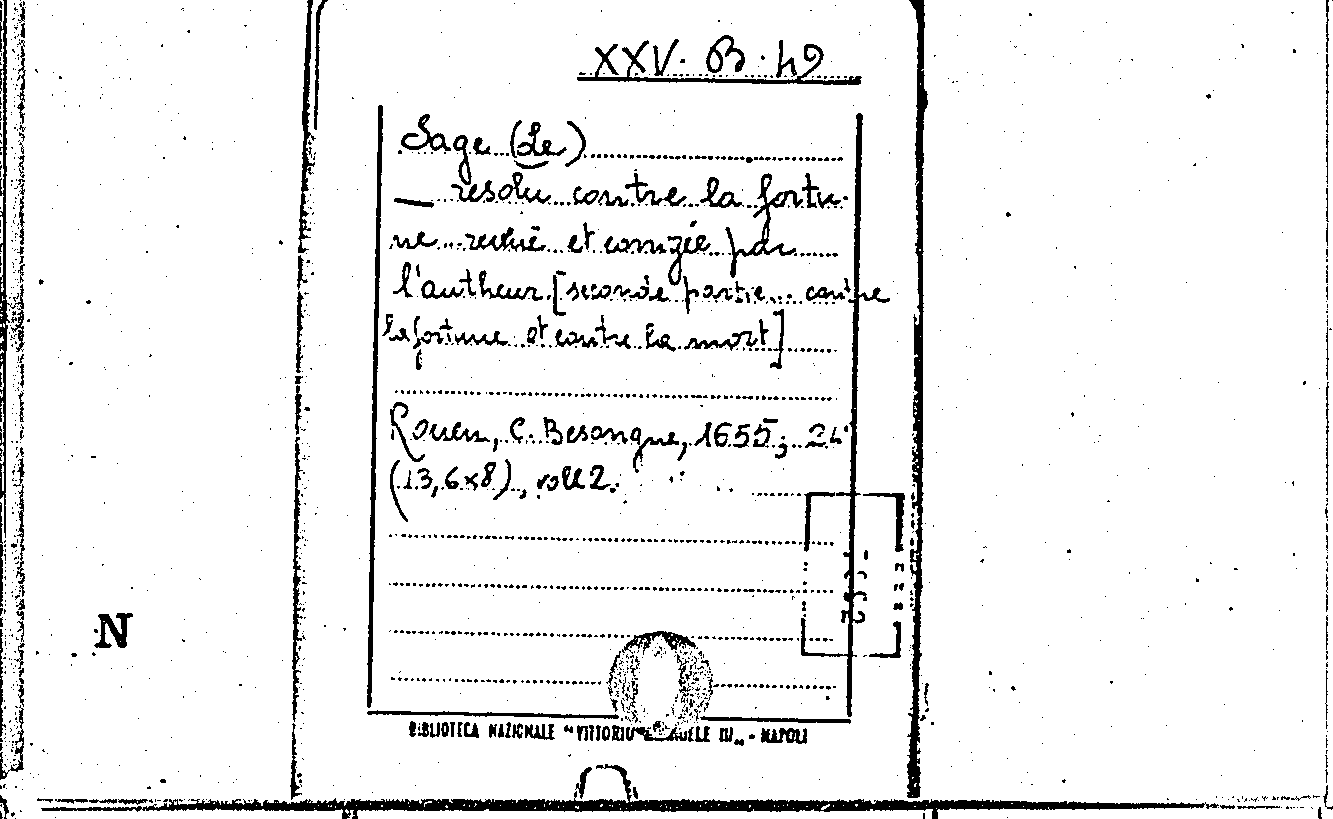 XXV. B. 49
Sage (Le)
— resolu contre la fortu-
ne.. et corrigée par
l'autheur [seconde partie... contre
la fortune et contre la mort]
Rouen, C. Besongne, 1655; 24°
(13,6x8), voll 2.
N
BIBLIOTECA NAZIONALE "VITTORIO EMANUELE III" - NAPOLI